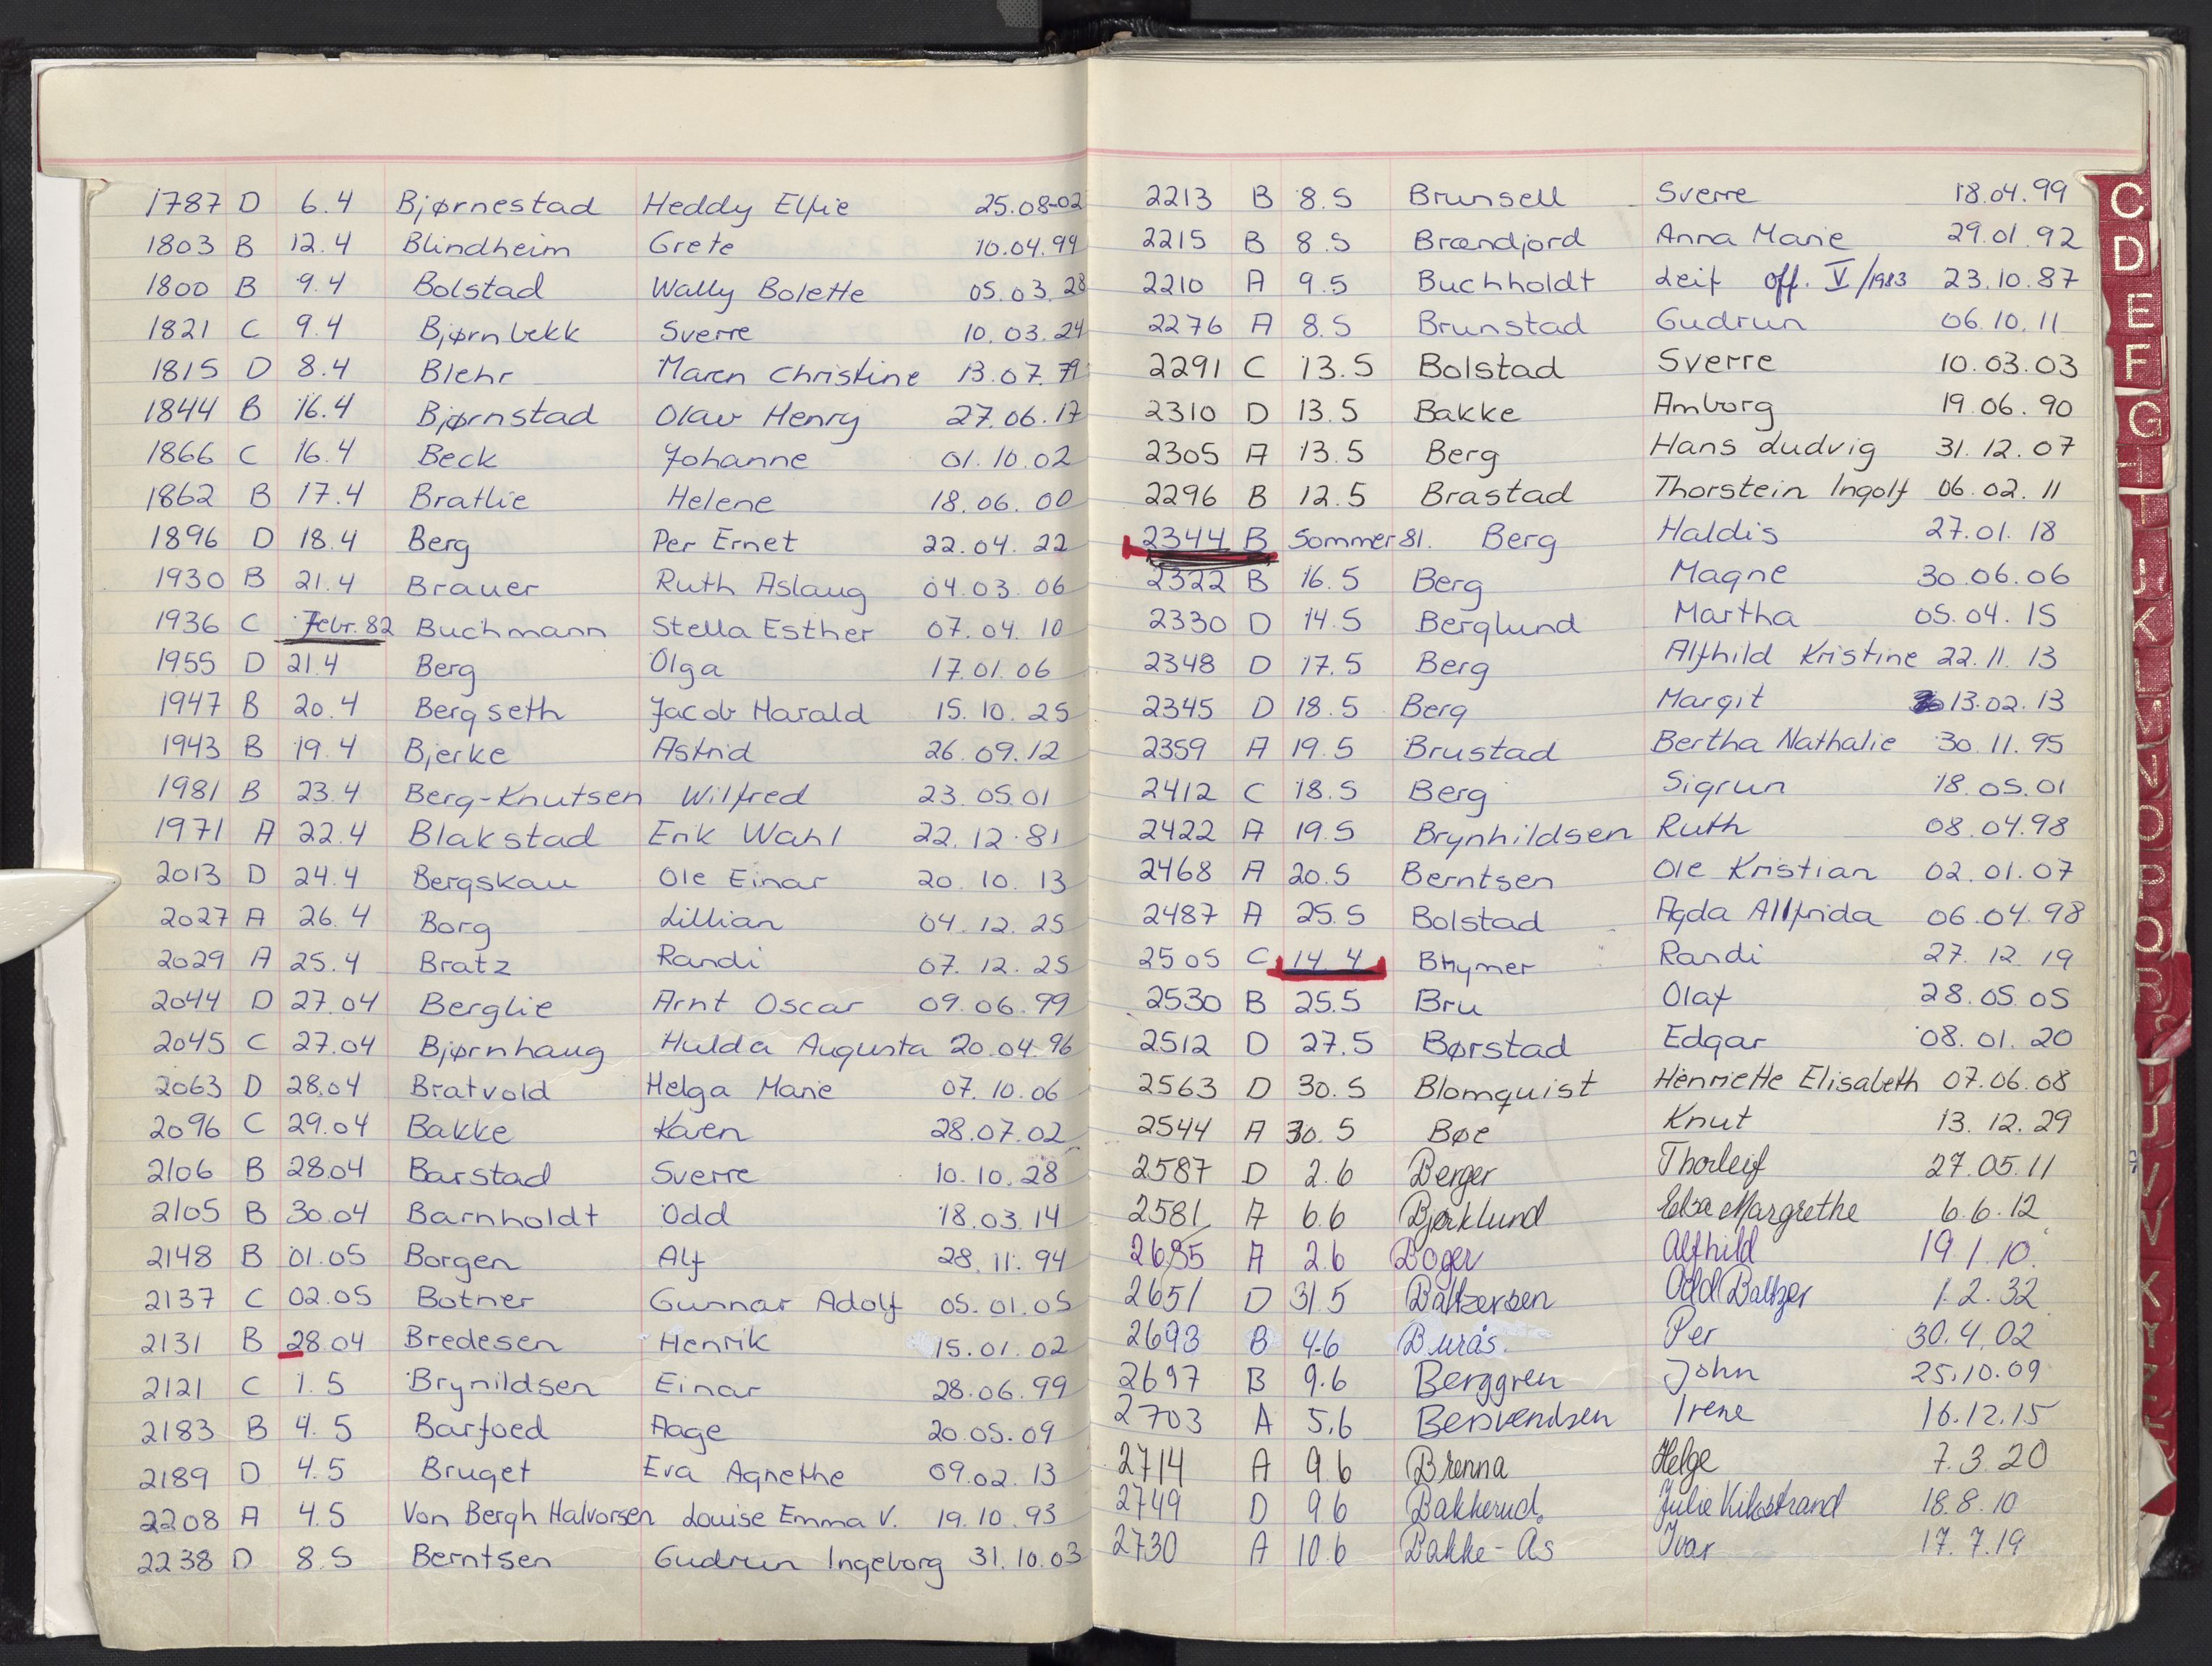 1787 D 6.4 Bjørnestad Heddy Elfie 25.08-02
1803 B 12.4 Blindheim Grete 10.04.99
1800 B 9.4 Bolstad Wally Bolette 05.03.28
1821 C 9.4 Bjørnbekk Sverre 10.03.24
1815 D 8.4 Blehr Maren Christine 13.07.79
1844 B 16.4 Bjørnstad Olav Henry 27.06.17
1866 C 16.4 Beck Johanne 01.10.02
1862 B 17.4 Bratlie Helene 18.06.00
1896 D 18.4 Berg Per Ernet 22.04.22
1930 B 21.4 Brauer Ruth Aslaug 04.03.06
1936 C Febr.82 Buchmann Stella Esther 07.04.10
1955 D 21.4 Berg Olga 17.01.06
1947 B 20.4 Bergseth Jacob Harald 15.10.25
1943 B 19.4 Bjerke Astrid 26.09.12
1981 B 23.4 Berg-Knutsen Wilfred 23.05.01
1971 A 22.4 Blakstad Erik Wahl 22.12.81
2013 D 24.4 Bergskau Ole Einar 20.10.13
2027 A 26.4 Borg Lillian 04.12.25
2029 A 25.4 Bratz Randi 07.12.25
2044 D 27.04 Berglie Arnt Oscar 09.06.99
2045 C 27.04 Bjørnhaug Hulda Augusta 20.04.96
2063 D 28.04 Bratvold Helga Marie 07.10.06
2096 C 29.04 Bakke Karen 28.07.02
2106 B 28.04 Barstad Sverre 10.10.28
2105 B 30.04 Barnholdt Odd 18.03.14
2148 B 01.05 Borgen Alf 28.11.94
2137 C 02.05 Botner Gunnar Adolf 05.01.05
2131 B 28.04 Bredesen Henrik 15.01.02
2121 C 1.5 Brynildsen Einar 28.06.99
2183 B 4.5 Barfoed Aage 20.05.09
2189 D 4.5 Bruget Eva Agnethe 09.02.13
2208 A 4.5 Von Bergh Halvorsen Louise Emma V. 19.10.93
2238 D 8.5 Berntsen Gudrun Ingeborg 31.10.03
2213 B 8.5 Brunsell Sverre 18.04.99
2215 B 8.5 Brændjord Anna Marie 29.01.92
2210 A 9.5 Buchholdt Leif off. V/1983 23.10.87
2276 A 8.5 Brunstad Gudrun 06.10.11
2291 C 13.5 Bolstad Sverre 10.03.03
2310 D 13.5 Bakke Amborg 19.06.90
2305 A 13.5 Berg Hans Ludvig 31.12.07
2296 B 12.5 Brastad Thorstein Ingolf 06.02.11
2344 B Sommer 81. Berg Haldis 27.01.18
2322 B 16.5 Berg Magne 30.06.06
2330 D 14.5 Berglund Martha 05.04.15
2348 D 17.5 Berg Alfhild Kristine 22.11.13
2345 D 18.5 Berg Margit 13.02.13
2359 A 19.5 Brustad Bertha Nathalie 30.11.95
2412 C 18.5 Berg Sigrun 18.05.01
2422 A 19.5 Brynhildsen Ruth 08.04.98
2468 A 20.5 Berntsen Ole Kristian 02.01.07
2487 A 25.5 Bolstad Agda Allfrida 06.04.98
2505 C 14.4 Randi 27.12.19
2530 B 25.5 Bru Olaf 28.05.05
2512 D 27.5 Børstad Edgar 08.01.20
2563 D 30.5 Blomquist Henriette Elisabeth 07.06.08
2544 A 30.5 Bøe Knut 13.12.29
2587 D 2.6 Berger Thorleif 27.05.11
2581 A 6.6 Bjørklund Elsa Margrethe 6.6.12
A 2.6 Boger Alfhild 19.1.10.
2651 D 31.5 Baltzersen Odd Baltzer 1.2.32
2693 B 4-6 Burås. Per 30.4.02
2697 B 9.6 Berggren John 25.10.09
2703 A 5.6 Besvendsen Irene 16.12.15
2714 A 9.6 Brenna Helge 7.3.20
2749 D 9.6 Bakkerud. Julie 18.8.10
2730 A 10.6 Bakke-Ås Ivar 17.7.19
C
D
E
F
G
H
I
J
K
L
M
N
O
P
Q
R
T
U
V